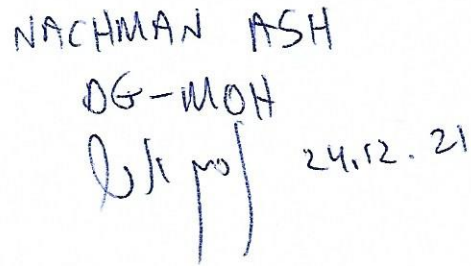 NACHMAN ASH
DG-MOH
24.12.21